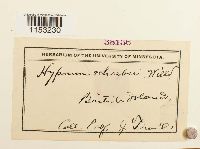 1153230
38155
HERBARIUM OF THE UNIVERSITY OF MINNESOTA.
Hypnum schreberi Willd
Coll. Prof. J.